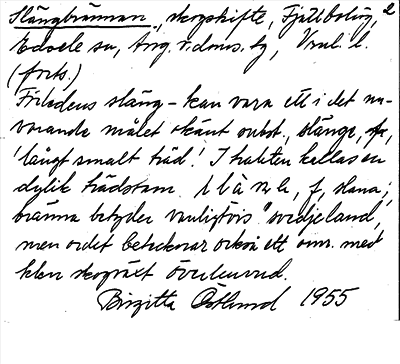 Slängbrännan, skogskifte, Fjällboläg, 2
Edsele sn, Ång. v. doms. lg, Vnl. l.
(forts.)
Förledens släng- kan vara ett i det nu-
varande målet okänt subst., slänge,
'långt smalt träd'. I trakten kallas en
dylik trädstam f, slana;
bränna betyder vanligtvis "svedjeland,
men ordet betecknar också ett omr. med
klen skogväxt överhuvud.
Birgitta Östlund 1955